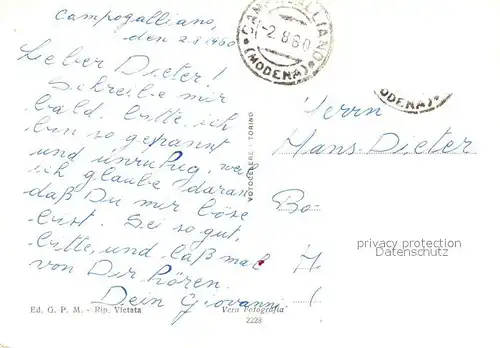 Campogalliano,
den 2.8.1960
Lieber Dieter!
Schreibe mir
bald, bitte, ich
bin so gespannt
und unruhig, weil
ich glaube daran
daß Du mir böse
bist. Sei so gut,
bitte, und laß mal
von Dir hören.
Dein Giovanni
Ed. G. P. M. - Rip. Vietata
Vera Fotografia
2228
CAMPOGALLIANO
-2.8.60
(MODENA)
ODENA)
Herrn
Hans-Dieter
Bo
H.
(
privacy protection
Datenschutz